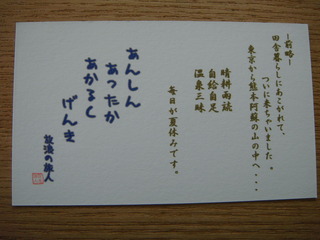 ―前略―
田舎暮らしにあこがれて、
ついに来ちゃいました。
東京から熊本阿蘇の山の中へ・・・
晴耕雨読
自給自足
温泉三昧
毎日が夏休みです。
あんしん
あったか
あかるく
げんき
放浪の旅人